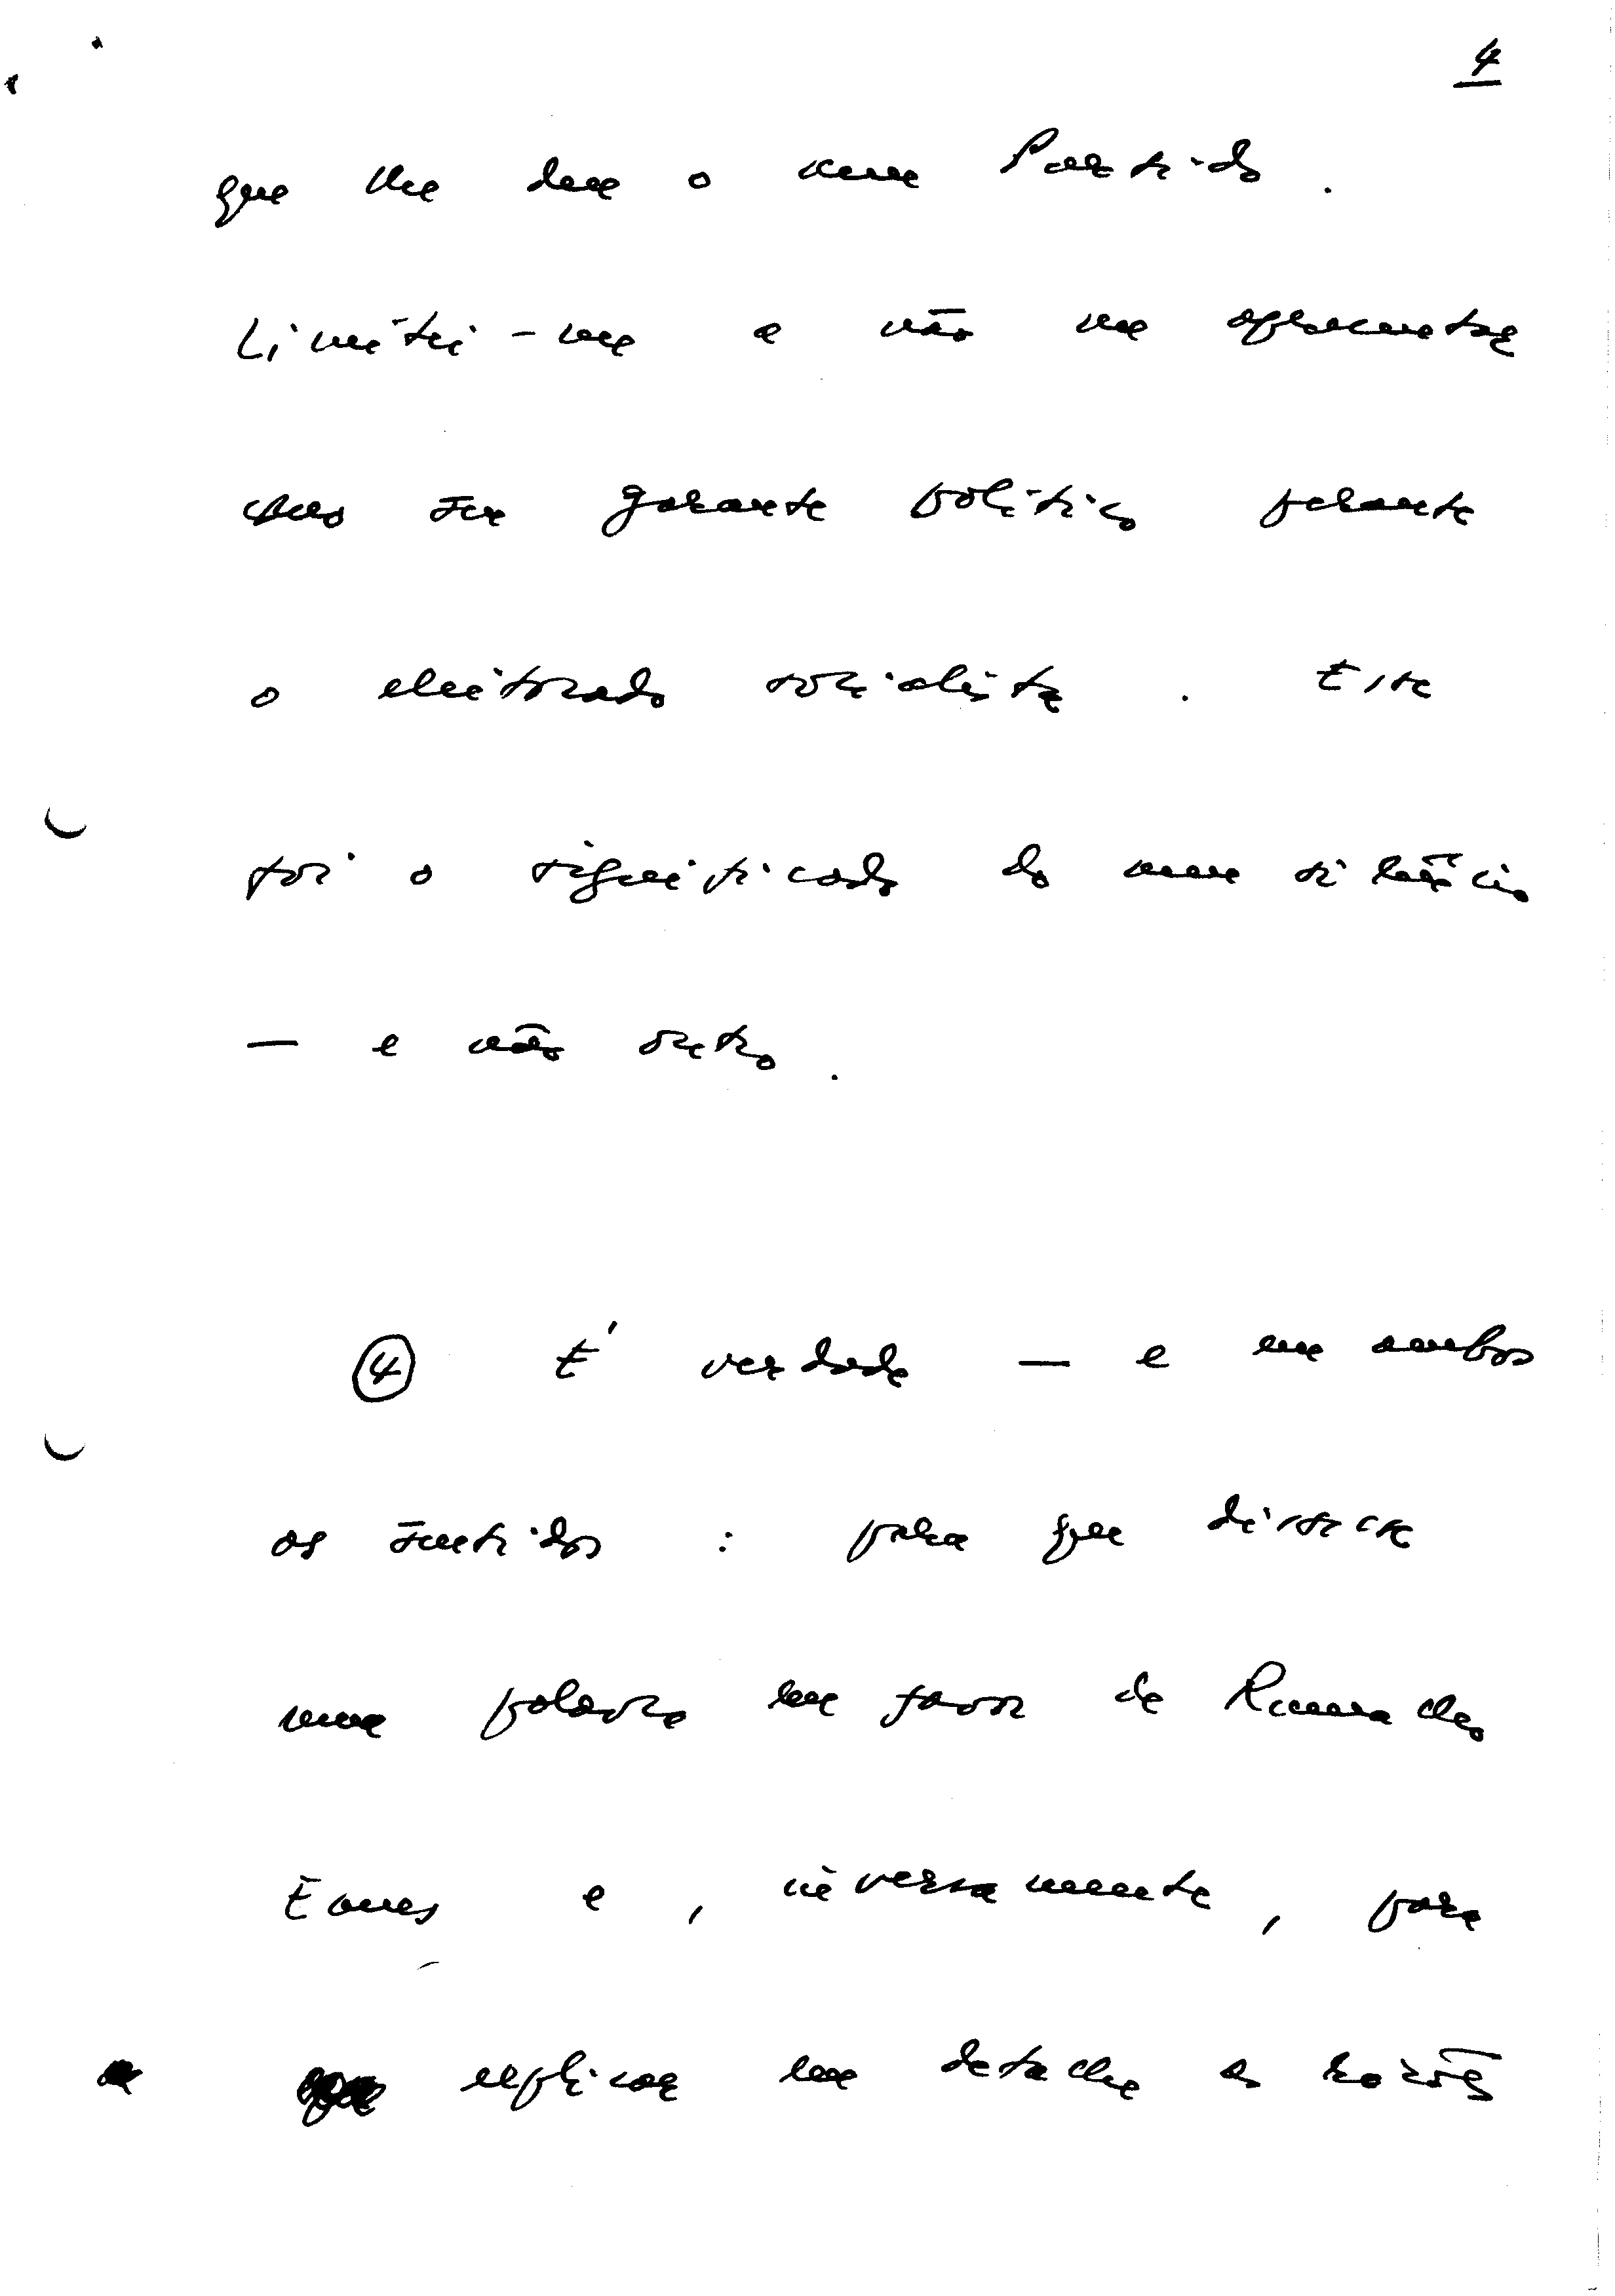 4
que lhe deu o meu Partido.
Limitei-me a não me apresentar
como seu garante político perante
o eleitorado socialista. Este
foi o significado do meu silêncio
— e não outro.
④ É verdade — e em ambos
os sentidos: para que dissesse
uma palavra em favor de Ramalho
Eanes e, inversamente, para
explicar em detalhe as razões